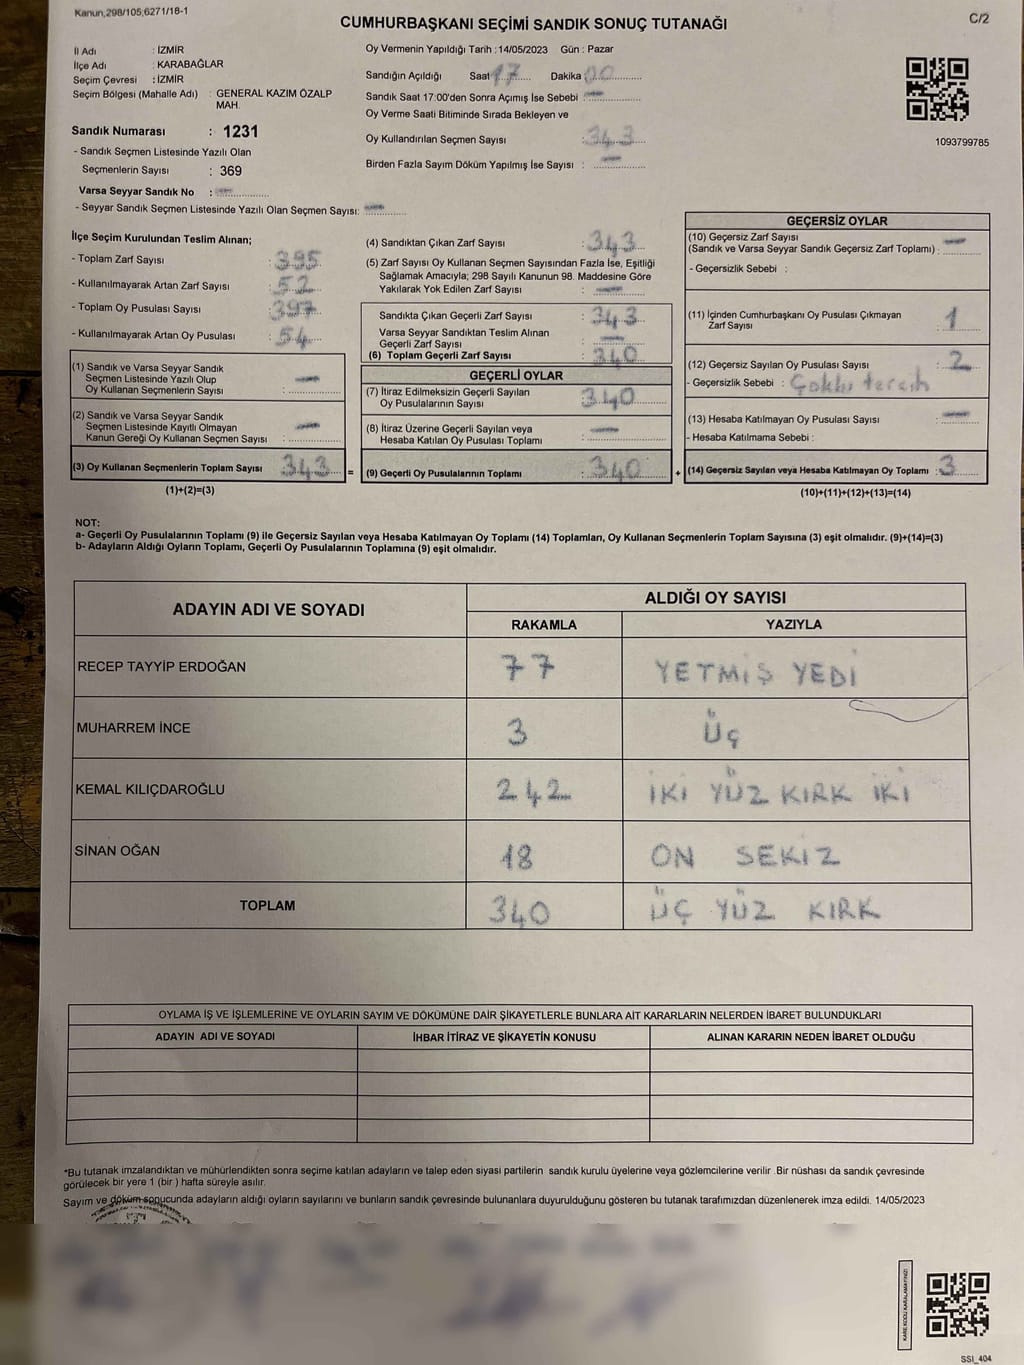 Kanun,298/105,6271/18-1
C/2
CUMHURBAŞKANI SEÇİMİ SANDIK SONUÇ TUTANAĞI
İl Adı : İZMİR
İlçe Adı : KARABAĞLAR
Seçim Çevresi : İZMİR
Seçim Bölgesi (Mahalle Adı) : GENERAL KAZIM ÖZALP
MAH.
Sandık Numarası : 1231
- Sandık Seçmen Listesinde Yazılı Olan
Seçmenlerin Sayısı : 369
Varsa Seyyar Sandık No : -
- Seyyar Sandık Seçmen Listesinde Yazılı Olan Seçmen Sayısı: -
Oy Vermenin Yapıldığı Tarih : 14/05/2023 Gün : Pazar
Sandığın Açıldığı Saat 17 Dakika 00
Sandık Saat 17:00'den Sonra Açımış İse Sebebi : -
Oy Verme Saati Bitiminde Sırada Bekleyen ve
Oy Kullandırılan Seçmen Sayısı : 343
Birden Fazla Sayım Döküm Yapılmış İse Sayısı : -
1093799785
İlçe Seçim Kurulundan Teslim Alınan;
- Toplam Zarf Sayısı : 395
- Kullanılmayarak Artan Zarf Sayısı : 52
- Toplam Oy Pusulası Sayısı : 397
- Kullanılmayarak Artan Oy Pusulası : 54
(1) Sandık ve Varsa Seyyar Sandık
Seçmen Listesinde Yazılı Olup
Oy Kullanan Seçmenlerin Sayısı : -
(2) Sandık ve Varsa Seyyar Sandık
Seçmen Listesinde Kayıtlı Olmayan
Kanun Gereği Oy Kullanan Seçmen Sayısı : -
(3) Oy Kullanan Seçmenlerin Toplam Sayısı 343 =
(1)+(2)=(3)
(4) Sandıktan Çıkan Zarf Sayısı : 343
(5) Zarf Sayısı Oy Kullanan Seçmen Sayısından Fazla İse, Eşitliği
Sağlamak Amacıyla; 298 Sayılı Kanunun 98. Maddesine Göre
Yakılarak Yok Edilen Zarf Sayısı : -
Sandıkta Çıkan Geçerli Zarf Sayısı : 343
Varsa Seyyar Sandıktan Teslim Alınan
Geçerli Zarf Sayısı : -
(6) Toplam Geçerli Zarf Sayısı : 340
GEÇERLİ OYLAR
(7) İtiraz Edilmeksizin Geçerli Sayılan
Oy Pusulalarının Sayısı : 340
(8) İtiraz Üzerine Geçerli Sayılan veya
Hesaba Katılan Oy Pusulası Toplamı : -
(9) Geçerli Oy Pusulalarının Toplamı : 340 +
GEÇERSİZ OYLAR
(10) Geçersiz Zarf Sayısı
(Sandık ve Varsa Seyyar Sandık Geçersiz Zarf Toplamı) : -
- Geçersizlik Sebebi :
(11) İçinden Cumhurbaşkanı Oy Pusulası Çıkmayan
Zarf Sayısı : 1
(12) Geçersiz Sayılan Oy Pusulası Sayısı : 2
- Geçersizlik Sebebi : Çoklu tercih
(13) Hesaba Katılmayan Oy Pusulası Sayısı : -
- Hesaba Katılmama Sebebi :
(14) Geçersiz Sayılan veya Hesaba Katılmayan Oy Toplamı : 3
(10)+(11)+(12)+(13)=(14)
NOT:
a- Geçerli Oy Pusulalarının Toplamı (9) ile Geçersiz Sayılan veya Hesaba Katılmayan Oy Toplamı (14) Toplamları, Oy Kullanan Seçmenlerin Toplam Sayısına (3) eşit olmalıdır. (9)+(14)=(3)
b- Adayların Aldığı Oyların Toplamı, Geçerli Oy Pusulalarının Toplamına (9) eşit olmalıdır.
ADAYIN ADI VE SOYADI
ALDIĞI OY SAYISI
RAKAMLA YAZIYLA
RECEP TAYYİP ERDOĞAN 77 YETMİŞ YEDİ
MUHARREM İNCE 3 Üç
KEMAL KILIÇDAROĞLU 242 İKİ YÜZ KIRK İKİ
SİNAN OĞAN 18 ON SEKİZ
TOPLAM 340 ÜÇ YÜZ KIRK
OYLAMA İŞ VE İŞLEMLERİNE VE OYLARIN SAYIM VE DÖKÜMÜNE DAİR ŞİKAYETLERLE BUNLARA AİT KARARLARIN NELERDEN İBARET BULUNDUKLARI
ADAYIN ADI VE SOYADI İHBAR İTİRAZ VE ŞİKAYETİN KONUSU ALINAN KARARIN NEDEN İBARET OLDUĞU
*Bu tutanak imzalandıktan ve mühürlendikten sonra seçime katılan adayların ve talep eden siyasi partilerin sandık kurulu üyelerine veya gözlemcilerine verilir .Bir nüshası da sandık çevresinde
görülecek bir yere 1 (bir ) hafta süreyle asılır.
Sayım ve döküm sonucunda adayların aldığı oyların sayılarını ve bunların sandık çevresinde bulunanlara duyurulduğunu gösteren bu tutanak tarafımızdan düzenlenerek imza edildi. 14/05/2023
KARE KODU KARALAMAYINIZ!
SSI_404